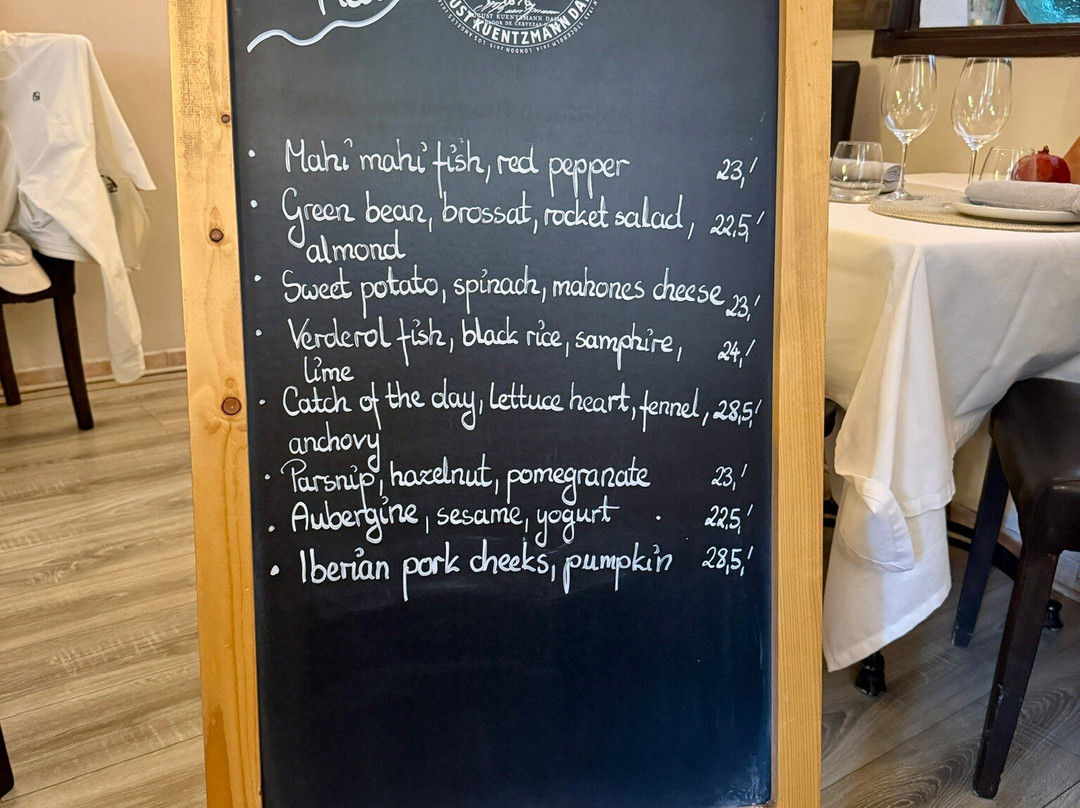 AUGUST KUENTZMANN DAMM
KUENTZMANN DA
LONDON 2016
Mahi mahi fish, red pepper 23,'
Green bean, brossat, rocket salad, 22,5,'
almond
Sweet potato, spinach, mahones cheese 23,'
Verderol fish, black rice, samphire, 24,'
lime
Catch of the day, lettuce heart, fennel, 28,5,'
anchovy
Parsnip, hazelnut, pomegranate 23,'
Aubergine, sesame, yogurt . 22,5,'
Iberian pork cheeks, pumpkin 28,5,'